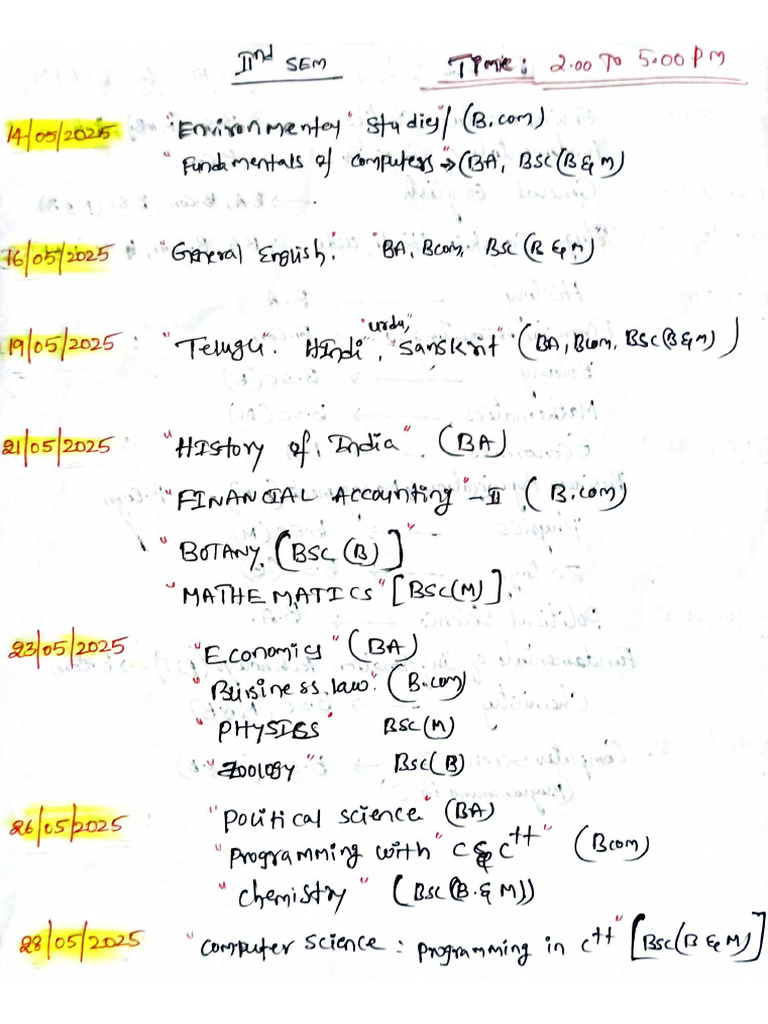 IInd SEM Time: 2.00 To 5.00 PM
14/05/2025 "Environmentey" Studies"/(B.com)
"Fundamentals of computers"→(BA, BSC(B&M)
16/05/2025 : "General English." "BA, Bcom, BSC (B&M)
"urdu,"
19/05/2025 : "Telugu". HIndi", "Sanskrit". (BA, Bcom, BSC(B&M)
21/05/2025 : "HIstory of India". (BA)
"FINANCIAL Accounting"-II (B.com)
"BOTANY. (BSC (B)]"
"MATHEMATICS" [BSC(M)].
23/05/2025 : "Economics" (BA)
"Business law". (B.com)
"PHYSICS" BSC(M)
"Zoology" BSC(B)
26/05/2025 "political science" (BA)
"programming with" C & C++" (Bcom)
"chemistry" (BSC(B.&M))
28/05/2025 "computer science: programming in C++" [BSC(B&M)]